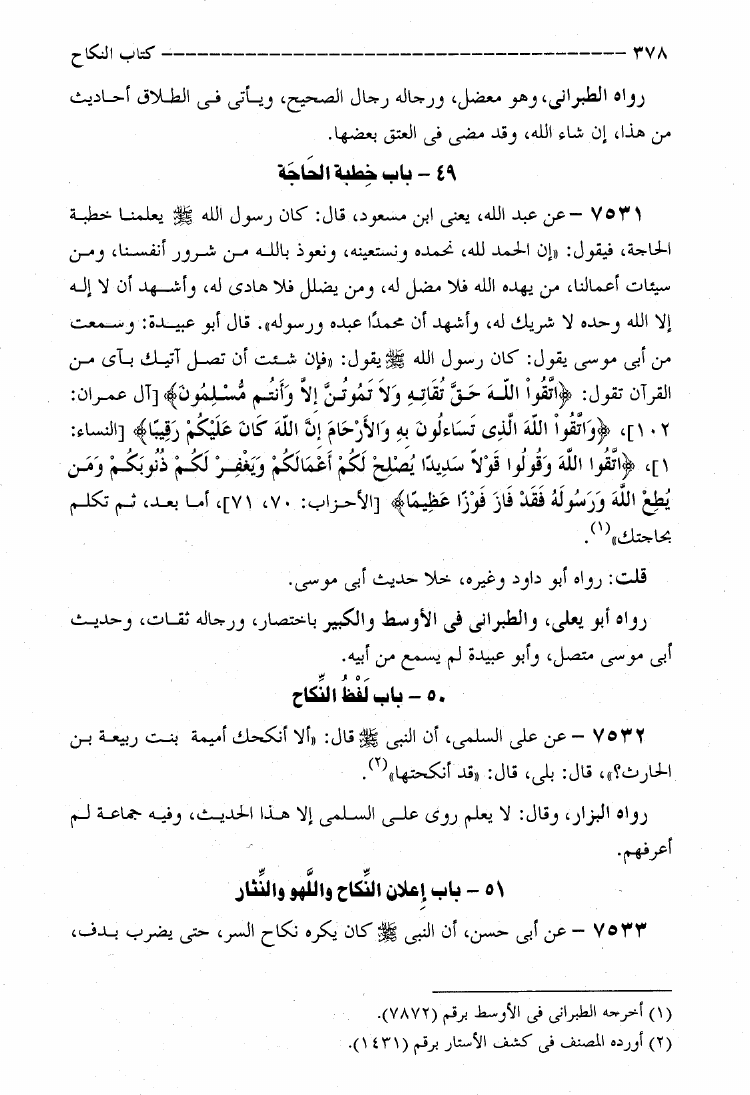 ٣٧٨ ــــــــــــــــــــــــــــــــــــــــــــــــــــــــــــ كتاب النكاح
رواه الطبرانى، وهو معضل، ورجاله رجال الصحيح، ويأتى فى الطلاق أحاديث
من هذا، إن شاء الله، وقد مضى فى العتق بعضها.
٤٩ – باب خِطبة الحَاجَة
٧٥٣١ – عن عبد الله، يعنى ابن مسعود، قال: كان رسول الله ﷺ يعلمنا خطبة
الحاجة، فيقول: «إن الحمد لله، نحمده ونستعينه، ونعوذ بالله من شرور أنفسنا، ومن
سيئات أعمالنا، من يهده الله فلا مضل له، ومن يضلل فلا هادى له، وأشهد أن لا إله
إلا الله وحده لا شريك له، وأشهد أن محمدًا عبده ورسوله». قال أبو عبيدة: وسمعت
من أبى موسى يقول: كان رسول الله ﷺ يقول: «فإن شئت أن تصل آتيك بآى من
القرآن تقول: ﴿اتَّقُواْ اللَّهَ حَقَّ تُقَاتِهِ وَلاَ تَمُوتُنَّ إِلاَّ وَأَنتُم مُّسْلِمُونَ﴾ [آل عمران:
١٠٢]، ﴿وَاتَّقُواْ اللَّهَ الَّذِى تَسَاءَلُونَ بِهِ وَالأَرْحَامَ إِنَّ اللَّهَ كَانَ عَلَيْكُمْ رَقِيبًا﴾ [النساء:
١]، ﴿اتَّقُوا اللَّهَ وَقُولُوا قَوْلاً سَدِيدًا يُصْلِحْ لَكُمْ أَعْمَالَكُمْ وَيَغْفِرْ لَكُمْ ذُنُوبَكُمْ وَمَن
يُطِعْ اللَّهَ وَرَسُولَهُ فَقَدْ فَازَ فَوْزًا عَظِيمًا﴾ [الأحزاب: ٧٠، ٧١]، أما بعد، ثم تكلم
بحاجتك»(١).
قلت: رواه أبو داود وغيره، خلا حديث أبى موسى.
رواه أبو يعلى، والطبرانى فى الأوسط والكبير باختصار، ورجاله ثقات، وحديث
أبى موسى متصل، وأبو عبيدة لم يسمع من أبيه.
٥٠ – باب لَفْظُ النِّكاح
٧٥٣٢ – عن على السلمى، أن النبى ﷺ قال: «ألا أنكحك أميمة بنت ربيعة بن
الحارث؟»، قال: بلى، قال: «قد أنكحتها»(٢).
رواه البزار، وقال: لا يعلم روى على السلمى إلا هذا الحديث، وفيه جماعة لم
أعرفهم.
٥١ – باب إعلان النِّكاح واللَّهو والنِّثار
٧٥٣٣ – عن أبى حسن، أن النبى ﷺ كان يكره نكاح السر، حتى يضرب بدف،
(١) أخرجه الطبرانى فى الأوسط برقم (٧٨٧٢).
(٢) أورده المصنف فى كشف الأستار برقم (١٤٣١).